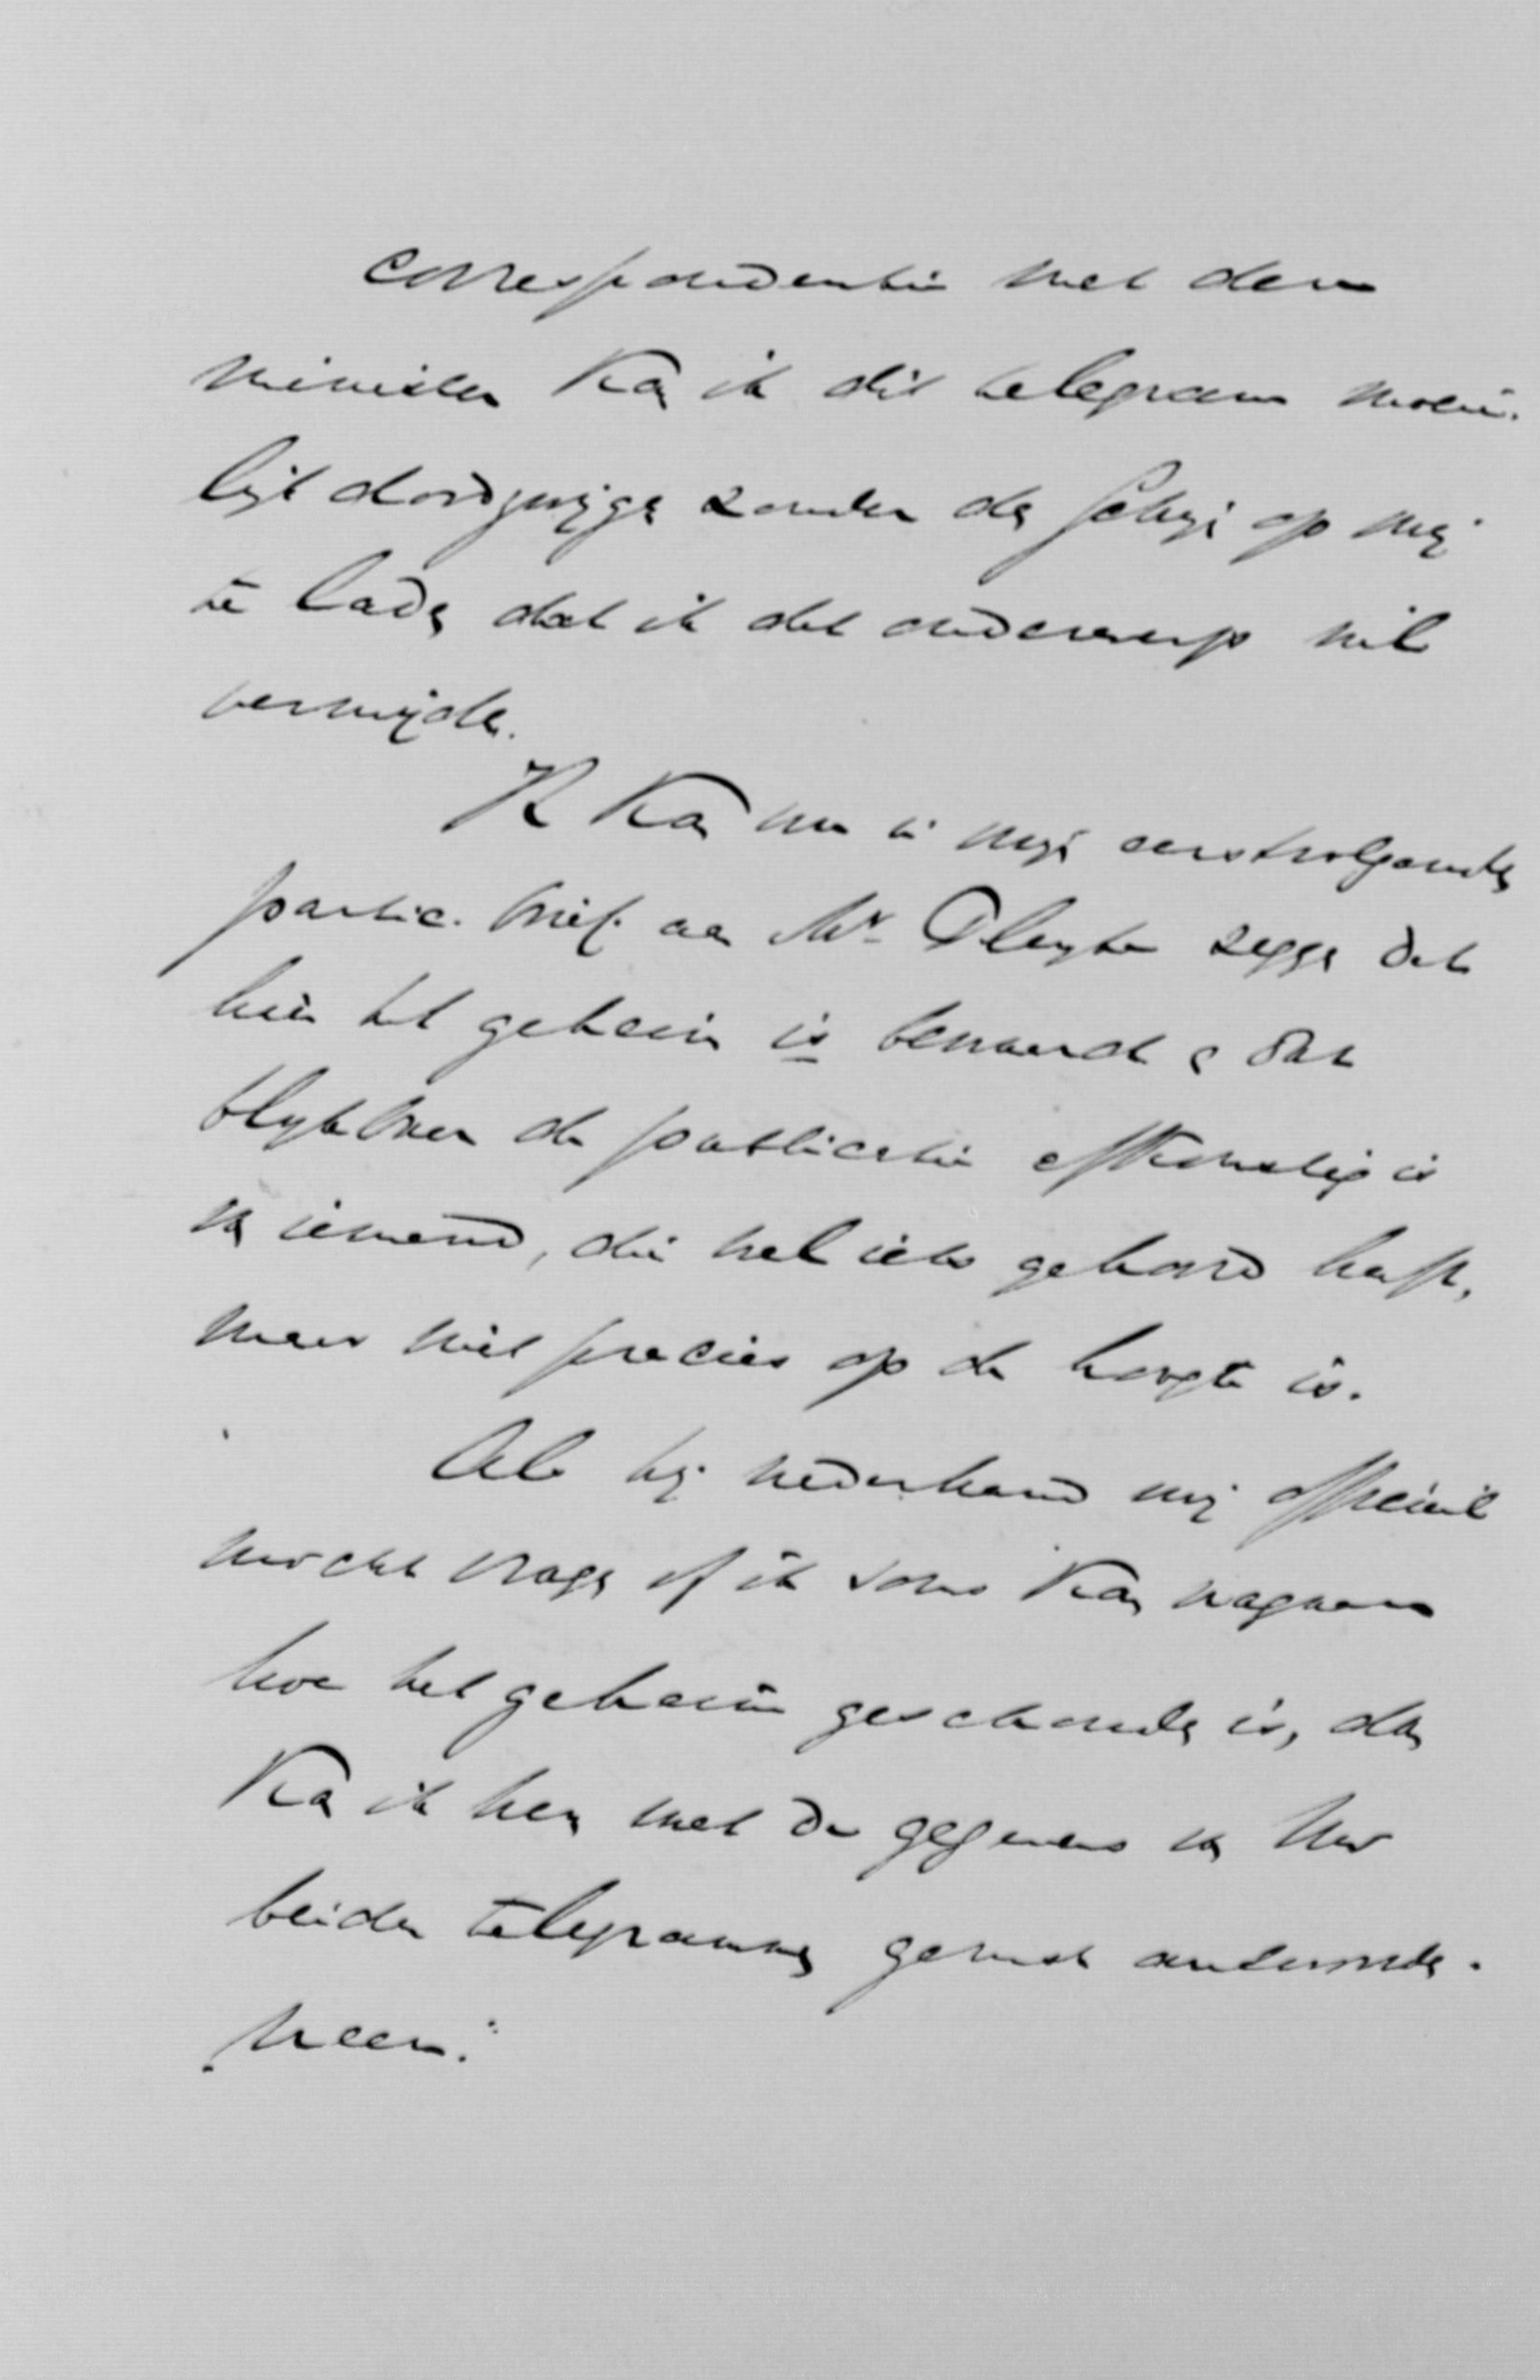 correspondentie met den
minister kan ik dit telegram moei-
lijk doodzwijgen zonder den schijn op mij
te laden dat ik dat onderwerp wil
vermijden.
Ik kan nu in mijn eerstvolgenden
partic. brief aan Mr. Pleyte zeggen dat
hier het geheim is bewaard & dat
blijkbaar de publicatie afkomstig is
van iemand, die wel iets gehoord heeft,
maar niet precies op de hoogte is.
Als hij nederhand mij officieel
mocht vragen of ik soms kan nagaan
hoe het geheim geschonden is, dan
kan ik hem met de gegevens van Uw
beider telegrammen gerust antwoorden.
neen.